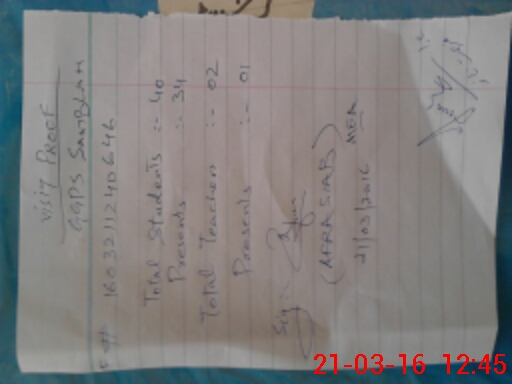 Visit PROOF
GGPS SANBLAH
160321124064 6
Total Students :- 40
Presents :- 34
Total Teacher :- 02
Presents :- 01
Sig :-
(AFRASIAB)
21/03/2016 MEA
21-03-16 12:45